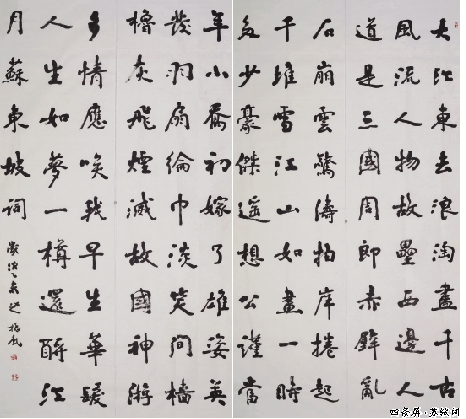 大江東去浪淘盡千古
風流人物故壘西邊人
道是三國周郎赤壁亂
石崩雲驚濤拍岸捲起
千堆雪江山如畫一時
多少豪傑遙想公瑾當
年小喬初嫁了雄姿英
發羽扇綸巾談笑間檣
櫓灰飛煙滅故國神游
多情應笑我早生華髮
人生如夢一樽還酹江
月蘇東坡詞
四条屏·苏轼词